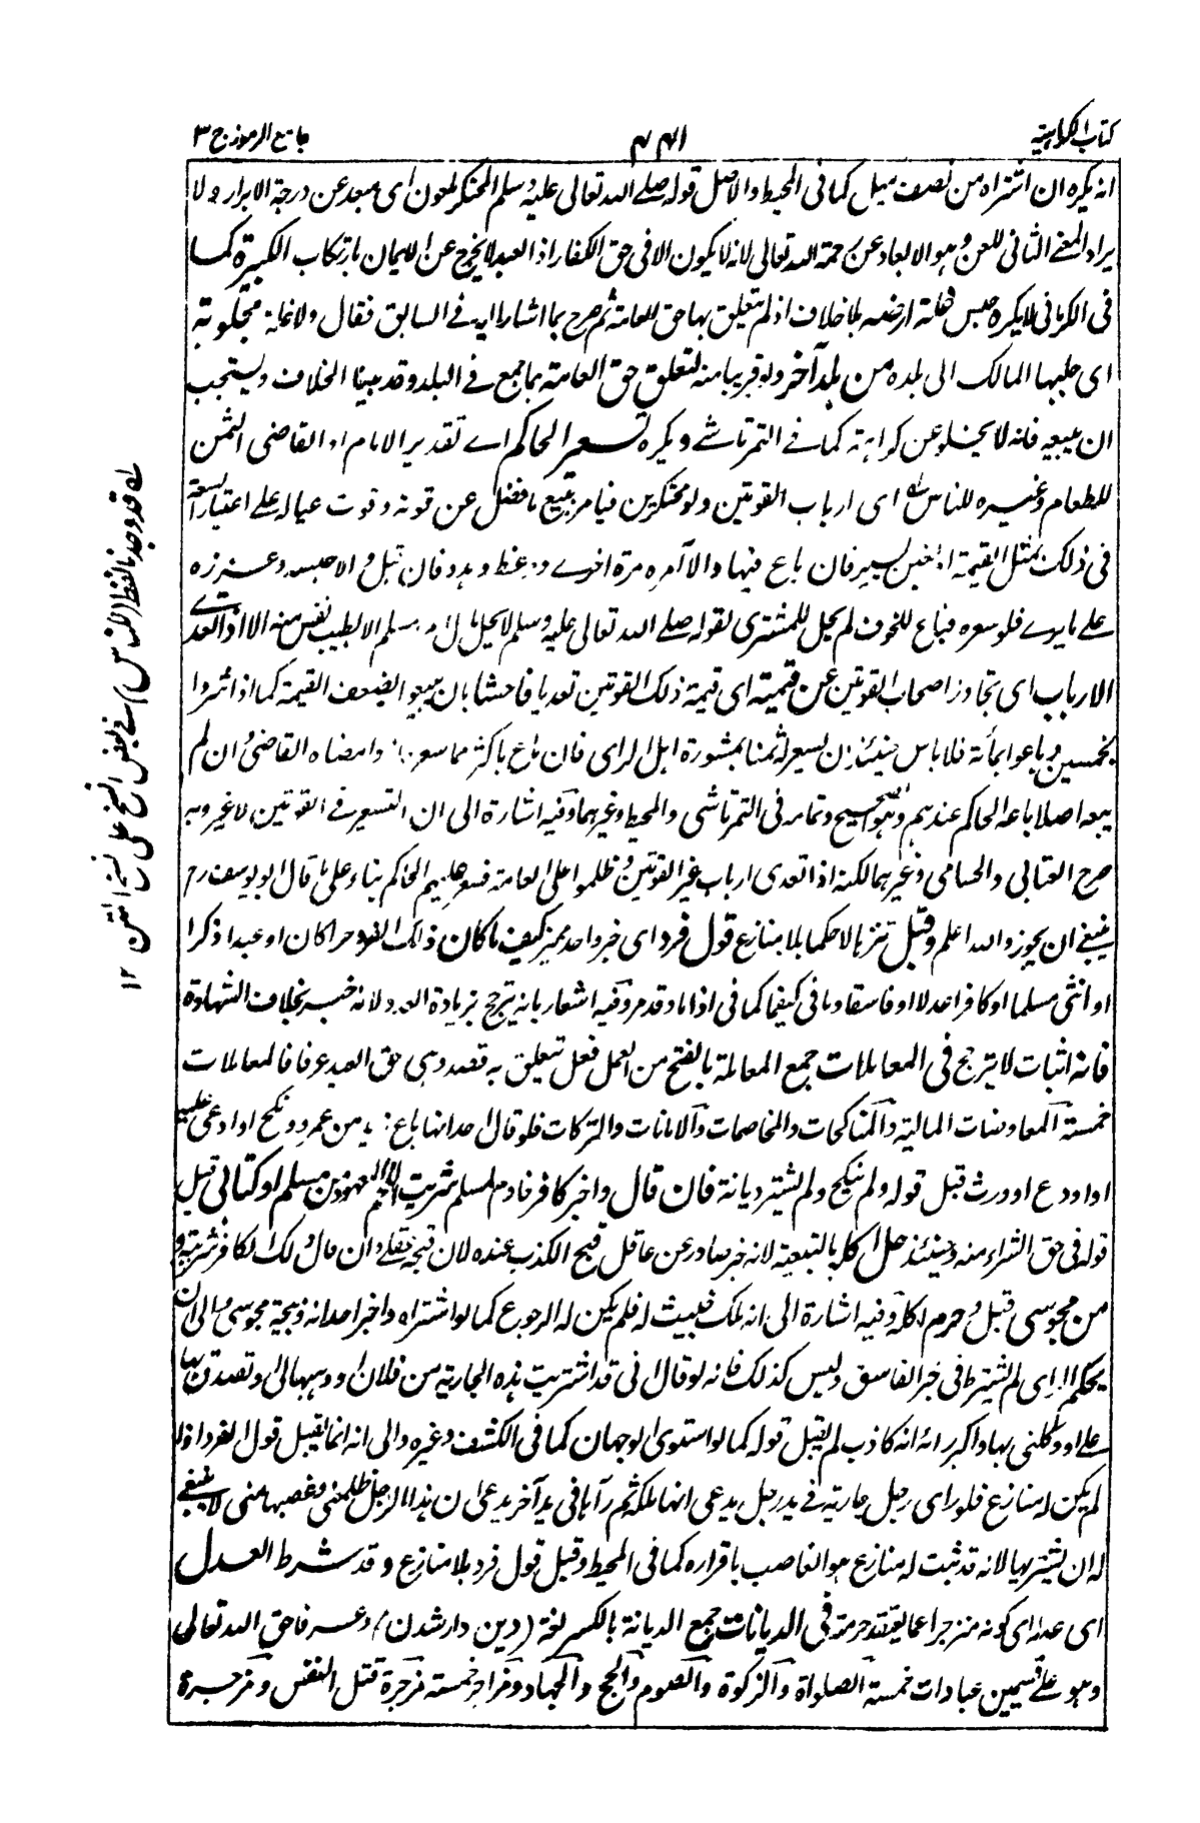 كتاب الكراهية
جامع الرموز ج ٣
انه يكره ان اشتراه من نصف ميل كما فى المحيط والاصل قوله صلى الله تعالى عليه وسلم المحتكر ملعون اى مبعد عن درجة الابرار ولا
يراد المعنى الثانى للعن وهو الابعاد عن رحمة الله تعالى لانه لا يكون الا فى حق الكفار اذ العبد لا يخرج عن الايمان بارتكاب الكبيرة كما
فى الكرمانى لا يكره حبس غلة ارضه بلا خلاف اذ لم يتعلق بها حق للعامة ثم صرح بما اشار اليه فى السابق فقال ولا غلة مجلوبة
اى جلبها المالك الى بلده من بلد آخر ولو قريبا منه لتعلق حق العامة بما جمع فى البلد وقد بينا الخلاف ويستحب
ان يبيعه فانه لا يخلو عن كراهة كما فى التمرتاشى ويكره تسعير الحاكم اى تقدير الامام او القاضى الثمن
للطعام وغيره للناس اى ارباب القوتين ولو محتكرين فيامر ببيع ما فضل عن قوته وقوت عياله على اعتبار السعة
فى ذلك بمثل القيمة او غبن يسير فان باع فيها والا آمره مرة اخرى وعظ وهدد فان قبل والا حبسه وعزره
على ما يرى فلو سعره فباع للخوف لم يحل للمشترى لقوله صلى الله تعالى عليه وسلم لا يحل مال مسلم الا بطيب نفس منه الا اذا تعدى
الارباب اى تجاوز اصحاب القوتين عن قيمته اى قيمة ذلك القوتين تعديا فاحشا بان يبيعوا بضعف القيمة كما اذا اشتروا
بخمسين وباعوا بمأة فلا باس حينئذ ان يسعر له ثمنا بمشورة اهل الراى فان باع باكثر مما سعر وامضاه القاضى وان لم
يبعه اصلا باعه الحاكم عندهم وهو الصحيح وتمامه فى التمرتاشى والمحيط وغيرهما وفيه اشارة الى ان التسعير فى القوتين لا غير وبه
صرح العتابى والحسامى وغيرهما لكنه اذا تعدى ارباب غير القوتين وظلموا على العامة فسعر عليهم الحاكم بناء على ما قال ابو يوسف رح
ينبغى ان يجوز والله اعلم وقبل تنزيلا حكما بلا منازع قول فرد اى خبر واحد مميز كيف ما كان ذلك الفرد حرا كان او عبدا ذكرا
او انثى مسلما او كافرا عدلا او فاسقا وما فى كيفما كما فى اذا ما وقد مر وفيه اشعار بانه يترجح بزيادة العدد لانه خبر بخلاف الشهادة
فانه اثبات لا يترجح فى المعاملات جمع المعاملة بالفتح من العمل فعل يتعلق به قصد وهى حق العبد عرفا فالمعاملات
خمسة المعاوضات المالية والمناكحات والمخاصمات والامانات والتركات فلو قال احد انها باع زيد من عمرو ونكح او ادعى عليه
او اودع او ورث قبل قوله ولم ينكح ولم يشتر ديانة فان قال واخبر كافر خادم لمسلم شريت اللحم من مسلم او كتابى قبل
قوله فى حق الشراء منه وحينئذ حل اكله بالتبعية لانه خبر صادر عن عاقل قبح الكذب عنده لان قبحه عقلى وان قال ذلك الكافر شريته
من مجوسى قبل وحرم اكله وفيه اشارة الى انه ملك خبيث له فلم يكن له الرجوع كما لو اشتراه واخبر احد انه ذبيحة مجوسى والى ان
يحكم الراى لم يشترط فى خبر الفاسق وليس كذلك فانه لو قال انى قد اشتريت هذه الجارية من فلان او وهبها لى وتصدق بها
على او وكلنى بها واكبر رائه انه كاذب لم يقبل قوله كما لو استوى الوجهان كما فى الكشف وغيره والى انه انما يقبل قول الفرد اذا
لم يكن له منازع فلو راى رجل جارية فى يد رجل يدعى انها ملكه ثم رآها فى يد آخر يدعى ان هذا الرجل ظلمنى وغصبها منى لا ينبغى
له ان يشتريها لانه قد ثبت له منازع هو الغاصب باقراره كما فى المحيط وقبل قول فرد بلا منازع وقد شرط العدل
اى عدله اى كونه منزجرا عما يعتقد حرمة فى الديانات جمع الديانة بالكسر لغة (دين دار شدن) وعرفا حق الله تعالى
وهو على قسمين عبادات خمسة الصلواة والزكوة والصوم والحج والجهاد ومزاجر خمسة مزجرة قتل النفس ومزجرة
له قد وجد نا لفظ (للناس) فى بعض النسخ على نسخ المتن ١٢